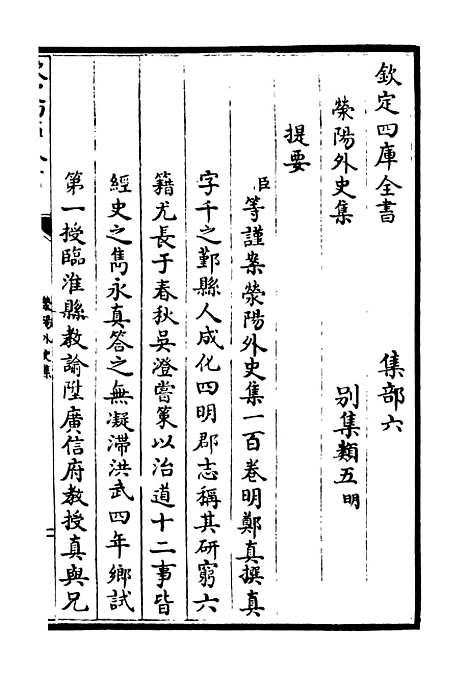 欽定四庫全書　集部六
滎陽外史集　別集類五明
提要
臣等謹案滎陽外史集一百卷明鄭真撰真
字千之鄞縣人成化四明郡志稱其研窮六
籍尤長于春秋吳澄嘗策以治道十二事皆
經史之雋永真答之無凝滯洪武四年鄉試
第一授臨淮縣教諭陞廣信府教授真與兄
滎陽外史集